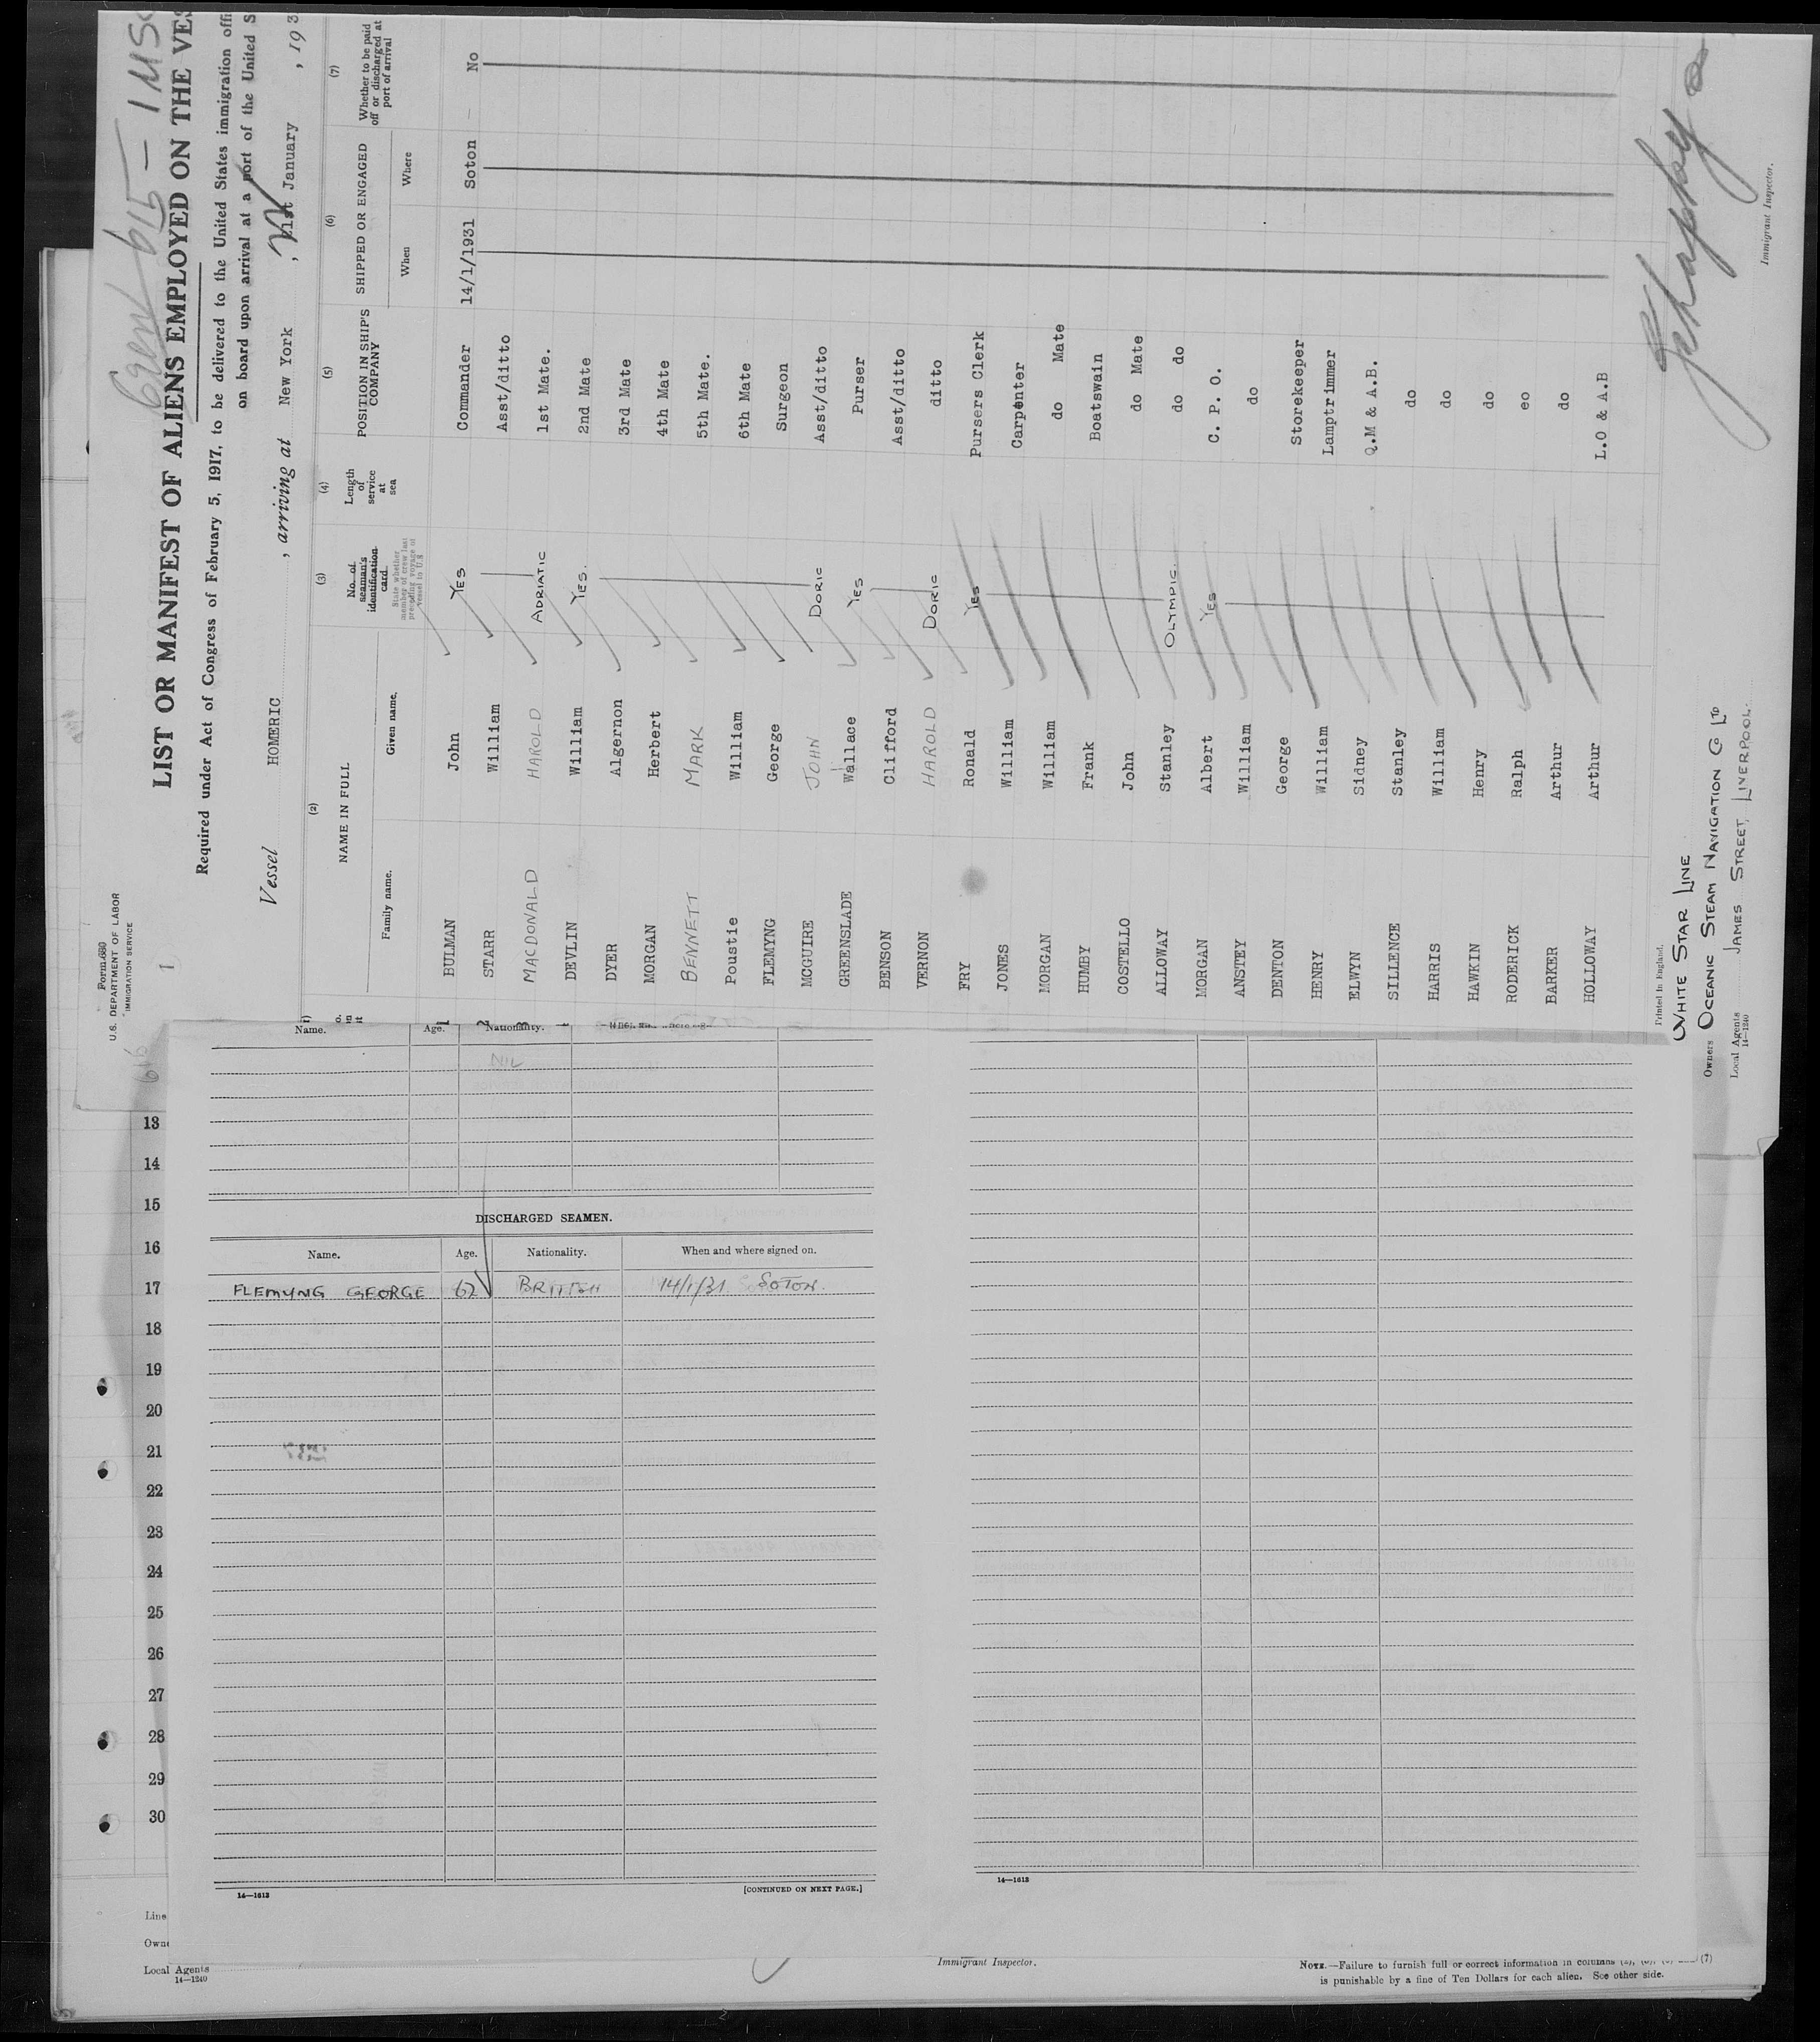 Form 680
U.S. DEPARTMENT OF LABOR
IMMIGRATION SERVICE
1
Crew 615 - 1 USC
LIST OR MANIFEST OF ALIENS EMPLOYED ON THE VES
Required under Act of Congress of February 5, 1917, to be delivered to the United States immigration offi
on board upon arrival at a port of the United S
Vessel HOMERIC, arriving at New York, January, 193
(2) (3) (4) (5) (6) (7)
NAME IN FULL
Family name. Given name.
No. of seaman's identification card.
State whether member of crew last preceding voyage of vessel to U.S
Length of service at sea
POSITION IN SHIP'S COMPANY
SHIPPED OR ENGAGED
When Where
Whether to be paid off or discharged at port of arrival
BULMAN John YES Commander 14/1/1931 Soton No
STARR William Asst/ditto
MACDONALD HAROLD ADRIATIC 1st Mate.
DEVLIN William YES. 2nd Mate
DYER Algernon 3rd Mate
MORGAN Herbert 4th Mate
BENNETT MARK 5th Mate.
Poustie William 6th Mate
FLEMYNG George Surgeon
MCGUIRE JOHN DORIC Asst/ditto
GREENSLADE Wallace YES Purser
BENSON Clifford Asst/ditto
VERNON HAROLD DORIC ditto
FRY Ronald YES Pursers Clerk
JONES William Carpenter
MORGAN William do Mate
HUMBY Frank Boatswain
COSTELLO John do Mate
ALLOWAY Stanley OLYMPIC. do do
MORGAN Albert YES C. P. O.
ANSTEY William do
DENTON George Storekeeper
HENRY William Lamptrimmer
ELWYN Sidney Q.M & A.B.
SILLENCE Stanley do
HARRIS William do
HAWKIN Henry do
RODERICK Ralph eo
BARKER Arthur do
HOLLOWAY Arthur L.O & A.B
Printed in England.
WHITE STAR LINE
Owners OCEANIC STEAM NAVIGATION Co LTD
Local Agents JAMES STREET, LIVERPOOL.
14—1240
Immigrant Inspector.
616
Name. Age. Nationality.
NIL
DISCHARGED SEAMEN.
Name. Age. Nationality. When and where signed on.
FLEMYNG GEORGE 62 BRITISH 14/1/31 SOTON.
14—1613
[CONTINUED ON NEXT PAGE.]
14—1613
13
14
15
16
17
18
19
20
21
22
23
24
25
26
27
28
29
30
Line
Owne
Local Agents
14—1240
Immigrant Inspector.
NOTE.—Failure to furnish full or correct information in columns (7)
is punishable by a fine of Ten Dollars for each alien. See other side.